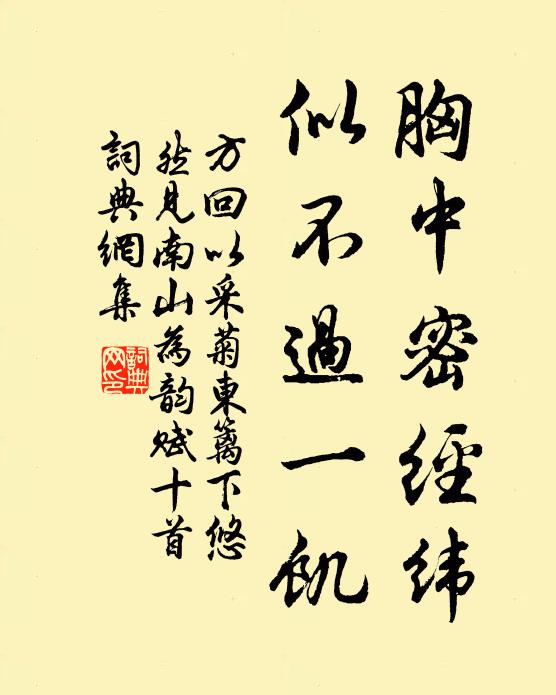 胸中密經緯
似不過一飢
方回以采菊東籬下悠
然見南山為韵賦十首
詞典網集
詞典網印